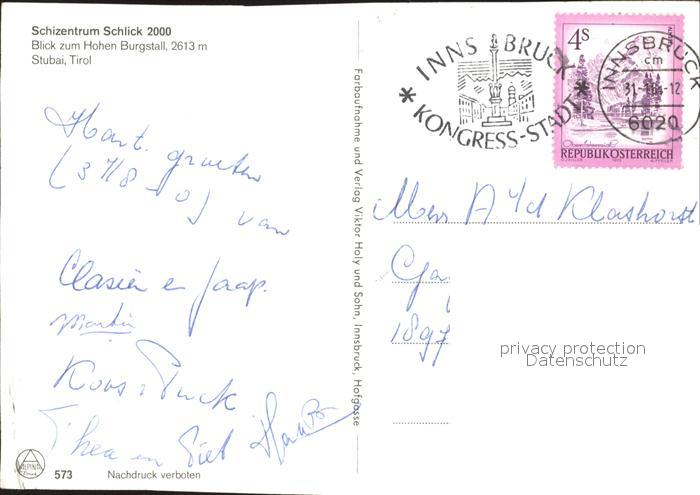 Schizentrum Schlick 2000
Blick zum Hohen Burgstall, 2613 m
Stubai, Tirol
Hart. groeten
van
Clasien en Jaap.
Martin
Koos + Puck
Thea en Piet
573
Nachdruck verboten
Farbaufnahme und Verlag Viktor Holy und Sohn, Innsbruck, Hofgasse
INNSBRUCK
* KONGRESS-STADT *
4S
REPUBLIK ÖSTERREICH
INNSBRUCK
cm
6020
A v/d Klashorst
1897
privacy protection
Datenschutz